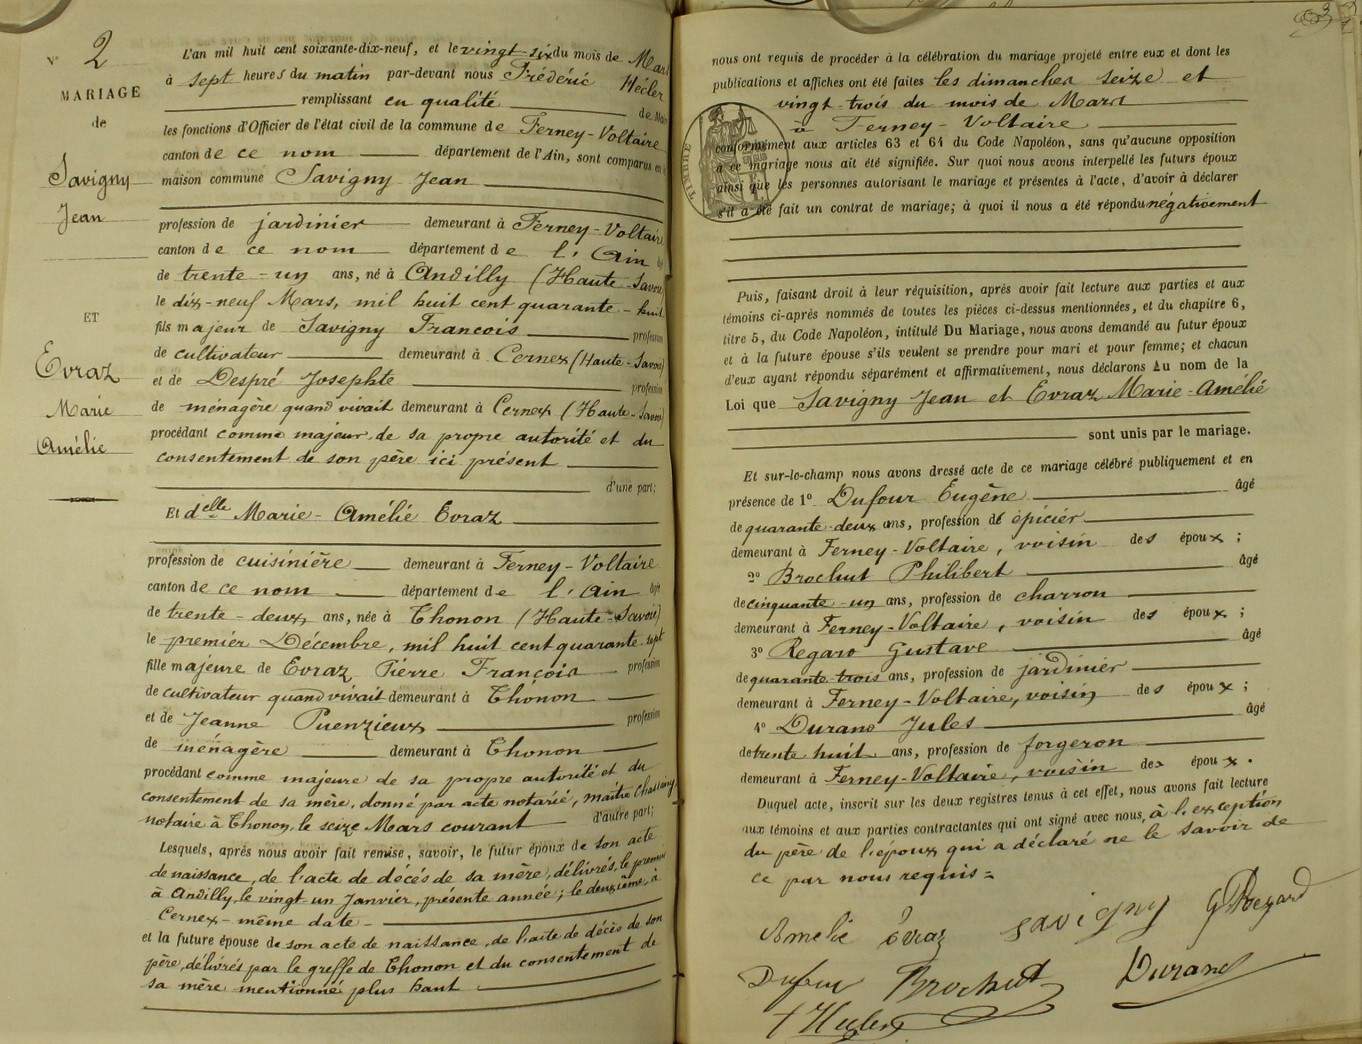 N° 2
MARIAGE
de
Savigny
Jean
ET
Evraz
Marie
Amélie
L'an mil huit cent soixante-dix-neuf, et le vingt six du mois de Mars
à sept heures du matin par-devant nous Frédéric Hécler
remplissant en qualité de Maire
les fonctions d'Officier de l'état civil de la commune de Ferney-Voltaire
canton de ce nom département de l'Ain, sont comparus en la
maison commune Savigny Jean
profession de jardinier demeurant à Ferney-Voltaire
canton de ce nom département de l'Ain âgé
de trente-un ans, né à Andilly (Haute-Savoie)
le dix-neuf Mars, mil huit cent quarante-huit
fils majeur de Savigny François profession
de cultivateur demeurant à Cernex (Haute-Savoie)
et de Despré Josephte profession
de ménagère quand vivait demeurant à Cernex (Haute-Savoie)
procédant comme majeur de sa propre autorité et du
consentement de son père ici présent
d'une part;
Et delle Marie-Amélié Evraz
profession de cuisinière demeurant à Ferney-Voltaire
canton de ce nom département de l'Ain âgée
de trente-deux ans, née à Thonon (Haute-Savoie)
le premier Décembre, mil huit cent quarante sept
fille majeure de Evraz Pierre François profession
de cultivateur quand vivait demeurant à Thonon
et de Jeanne Puenzieux profession
de ménagère demeurant à Thonon
procédant comme majeure de sa propre autorité et du
consentement de sa mère, donné par acte notarié, maître
notaire à Thonon, le seize Mars courant d'autre part;
Lesquels, après nous avoir fait remise, savoir, le futur époux de son acte
de naissance, de l'acte de décés de sa mère, délivrés, le premier
à Andilly, le vingt un Janvier, présente année; le deuxième, à
Cernex-même date-
et la future épouse de son acte de naissance, de l'acte de décès de son
père, délivrés par le greffe de Thonon et du consentement de
sa mère mentionné plus haut
nous ont requis de procéder à la célébration du mariage projeté entre eux et dont les
publications et affiches ont été faites les dimanches seize et
vingt-trois du mois de Mars
à Ferney-Voltaire
TIMBRE
conformément aux articles 63 et 64 du Code Napoléon, sans qu'aucune opposition
à ce mariage nous ait été signifiée. Sur quoi nous avons interpellé les futurs époux
ainsi que les personnes autorisant le mariage et présentes à l'acte, d'avoir à déclarer
s'il a été fait un contrat de mariage; à quoi il nous a été répondu négativement
Puis, faisant droit à leur réquisition, après avoir fait lecture aux parties et aux
témoins ci-après nommés de toutes les pièces ci-dessus mentionnées, et du chapitre 6,
titre 5, du Code Napoléon, intitulé Du Mariage, nous avons demandé au futur époux
et à la future épouse s'ils veulent se prendre pour mari et pour femme; et chacun
d'eux ayant répondu séparément et affirmativement, nous déclarons au nom de la
Loi que Savigny Jean et Evraz Marie-Amélié
sont unis par le mariage.
Et sur-le-champ nous avons dressé acte de ce mariage célébré publiquement et en
présence de 1° Dufour Eugène âgé
de quarante-deux ans, profession de épicier
demeurant à Ferney-Voltaire, voisin des époux;
2° Brochut Philibert âgé
de cinquante-un ans, profession de charron
demeurant à Ferney-Voltaire, voisin des époux;
3° Regard Gustave âgé
de quarante-trois ans, profession de jardinier
demeurant à Ferney-Voltaire, voisin des époux;
4° Durand Jules âgé
de trente huit ans, profession de forgeron
demeurant à Ferney-Voltaire, voisin des époux.
Duquel acte, inscrit sur les deux registres tenus à cet effet, nous avons fait lecture
aux témoins et aux parties contractantes qui ont signé avec nous, à l'exception
du père de l'époux qui a déclaré ne le savoir de
ce par nous requis=
Amelie Evraz savigny G Regard
Dufour Brochut Durand
f Hecler